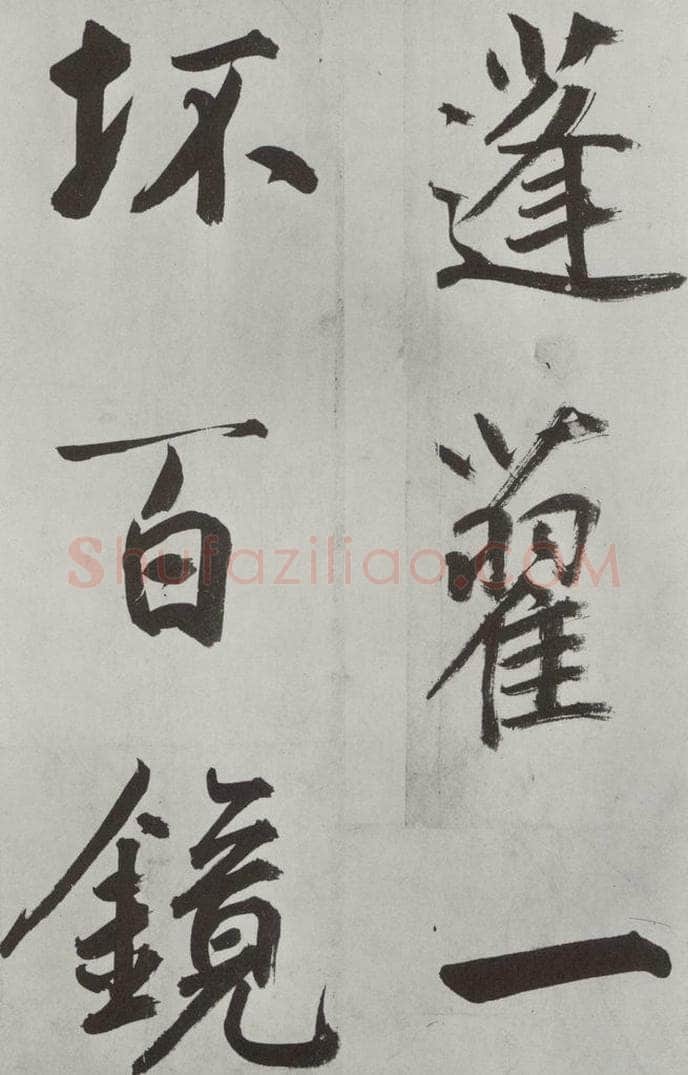 蓬藋一
坏百鏡
Shufaziliao.COM